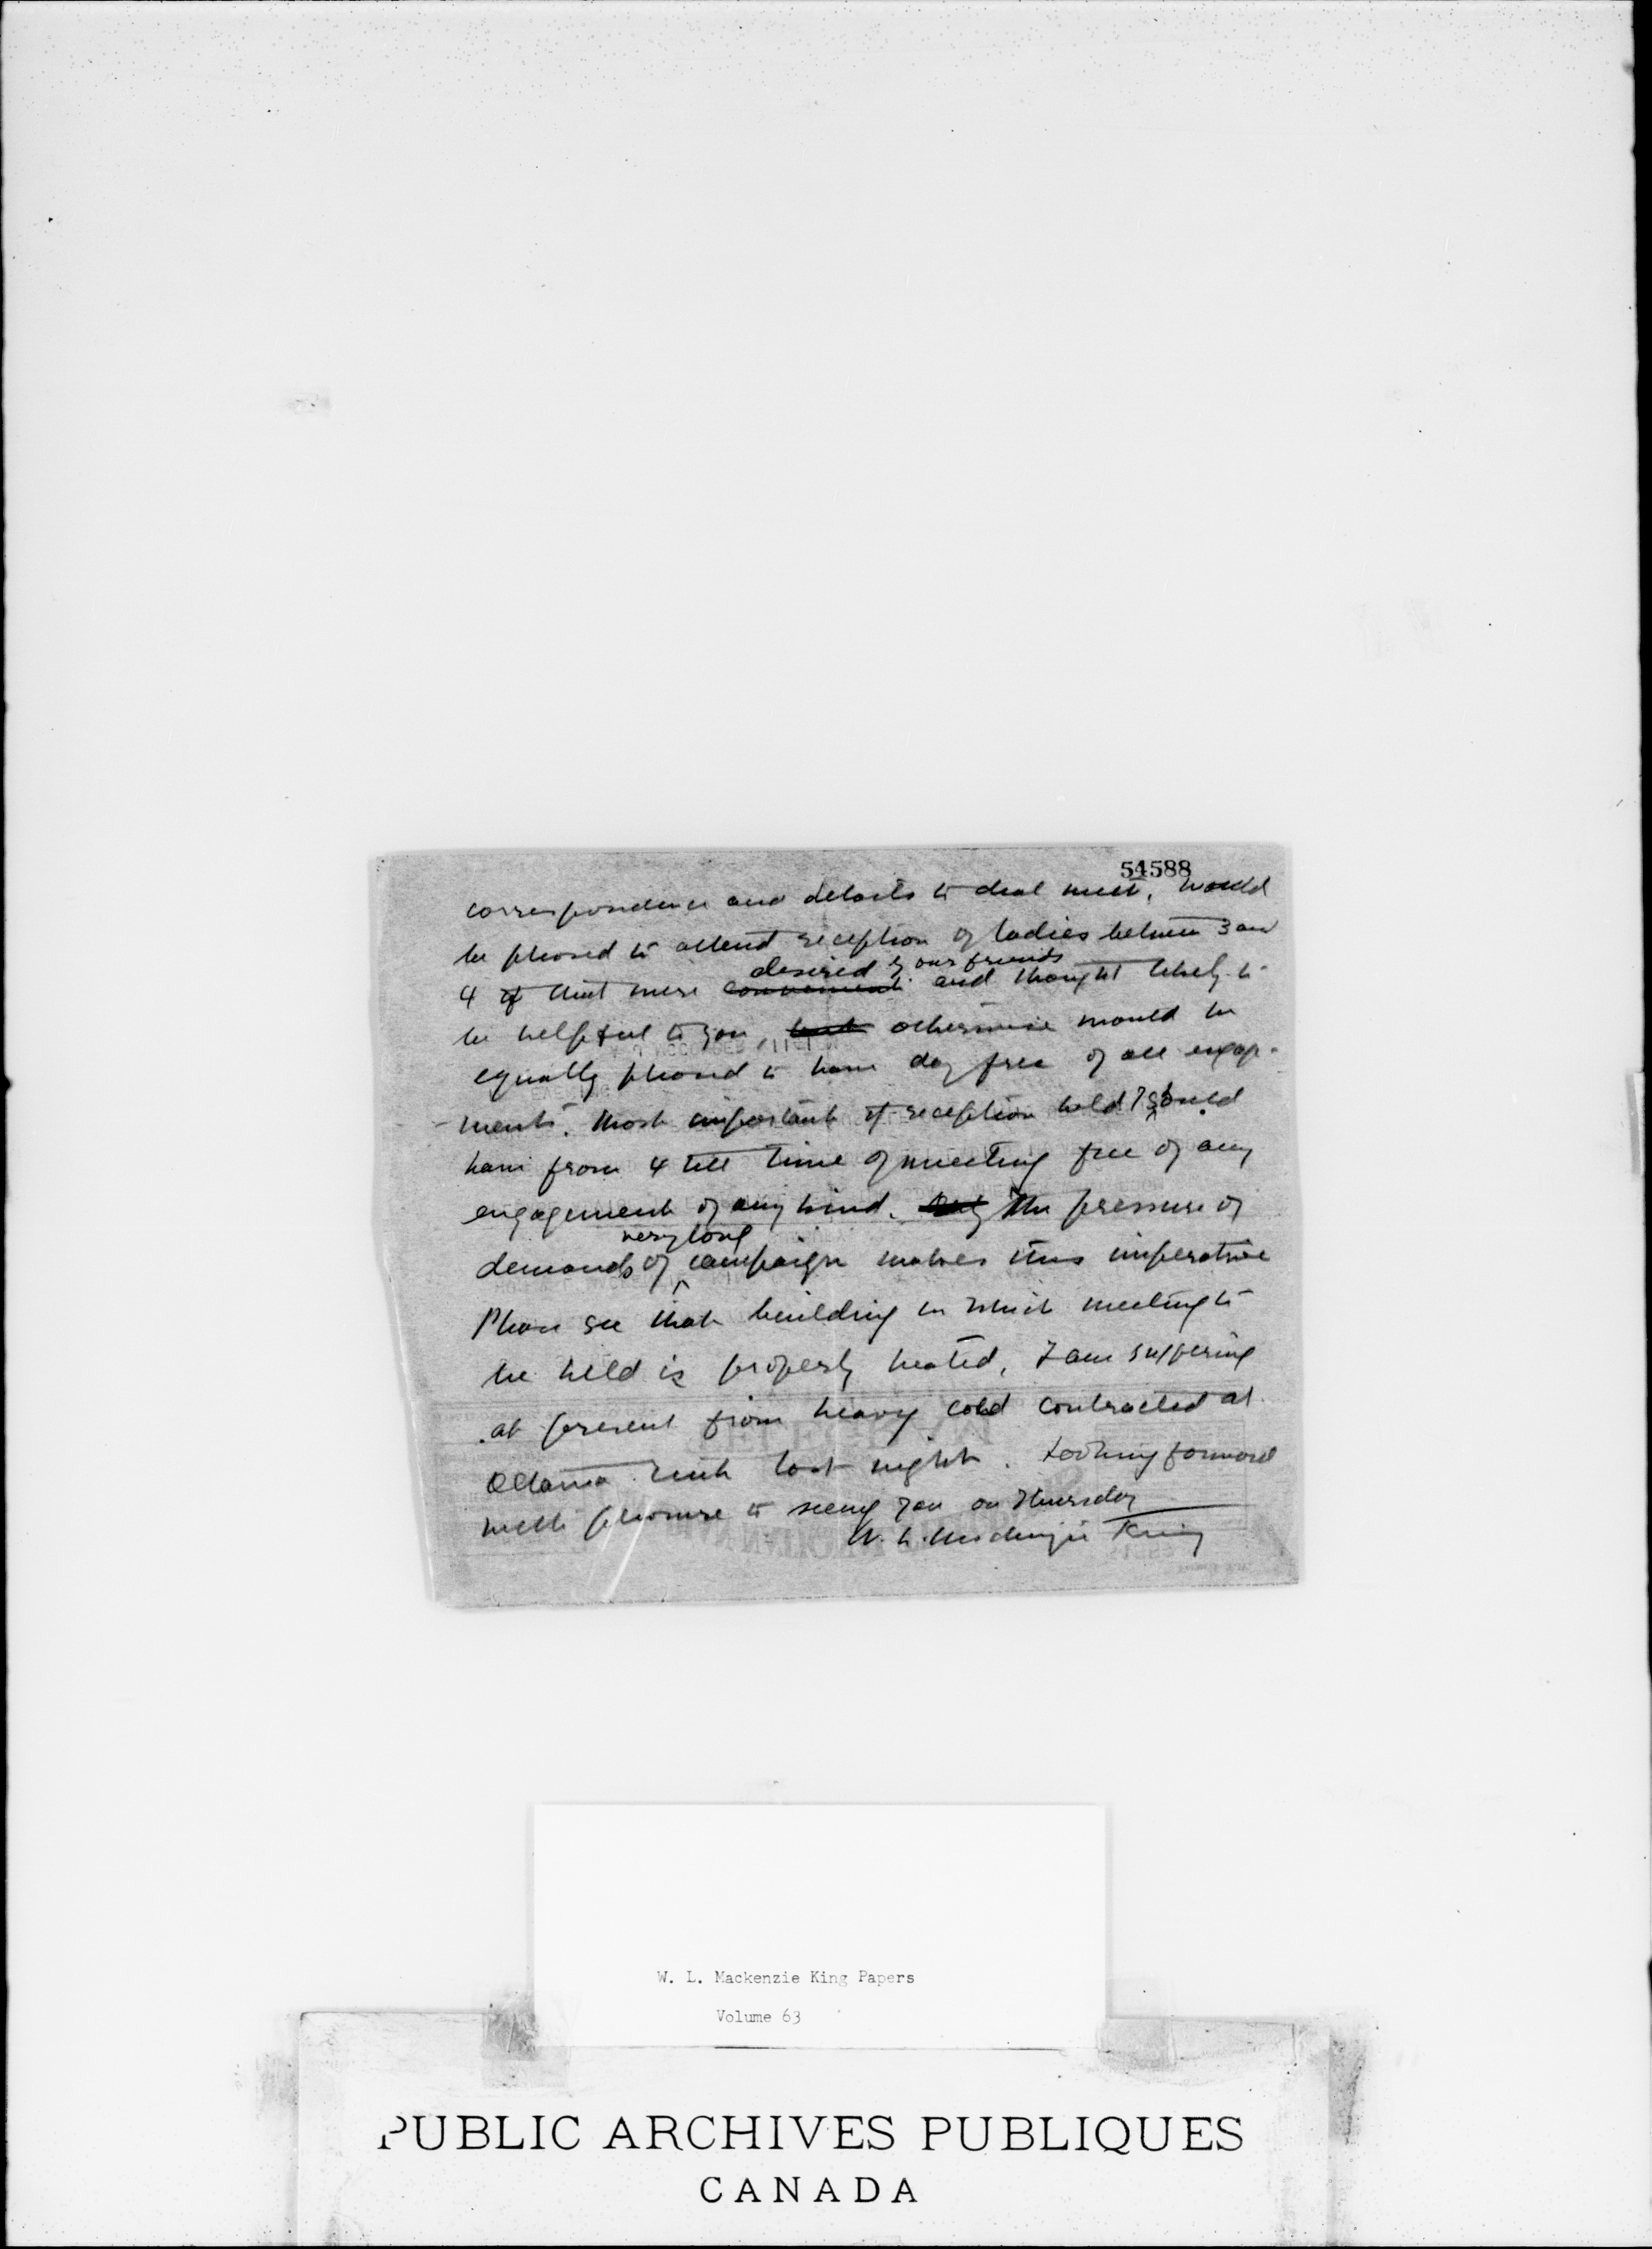 54588
correspondence and details to deal with, would
be pleased to attend reception of ladies between 3 and
desired by our friends
4 if that were convenient and thought likely to
be helpful to you, but otherwise would be
equally pleased to have day free of all engage-
ments. Most important if reception held I should
have from 4 till time of meeting free of any
engagement of any kind. The pressure of
very long
demands of campaign makes this imperative
Please see that building in which meeting to
be held is properly heated, I am suffering
at present from heavy cold contracted at
Ottawa rink last night. Looking forward
with pleasure to seeing you on Thursday
W. L. Mackenzie King
W. L. Mackenzie King Papers
Volume 63
PUBLIC ARCHIVES PUBLIQUES
CANADA